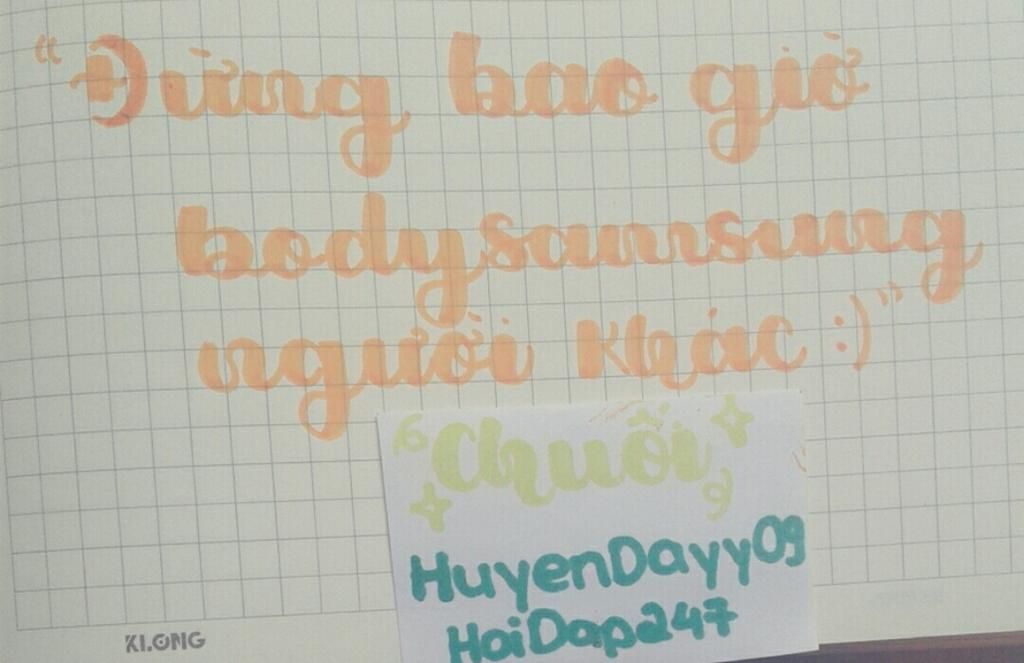 “Đừng bao giờ
bodysamsung
người khác :)”
Chuối
HuyenDayy09
HoiDap247
KLONG